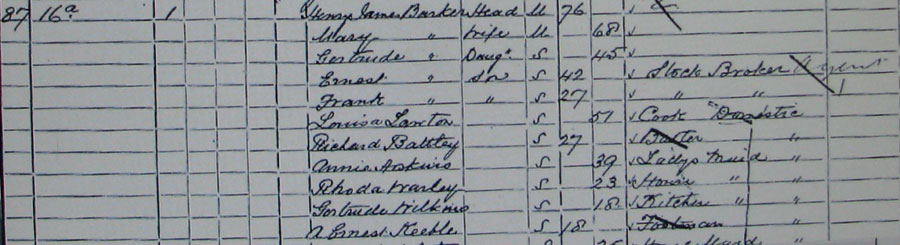 87 16a 1 Henry James Barker Head M 76
Mary " Wife M 68
Gertrude " Daugr S 45
Ernest " Son S 42 Stock Broker Agent
Frank " " S 27 " "
Louisa S 51 Cook Domestic
Richard Battley S 27 Butler "
Annie S 39 Ladys Maid "
Rhoda S 23 House " "
Gertrude Wilkins S 18 Kitchen " "
A Ernest Keeble S 18 Footman "